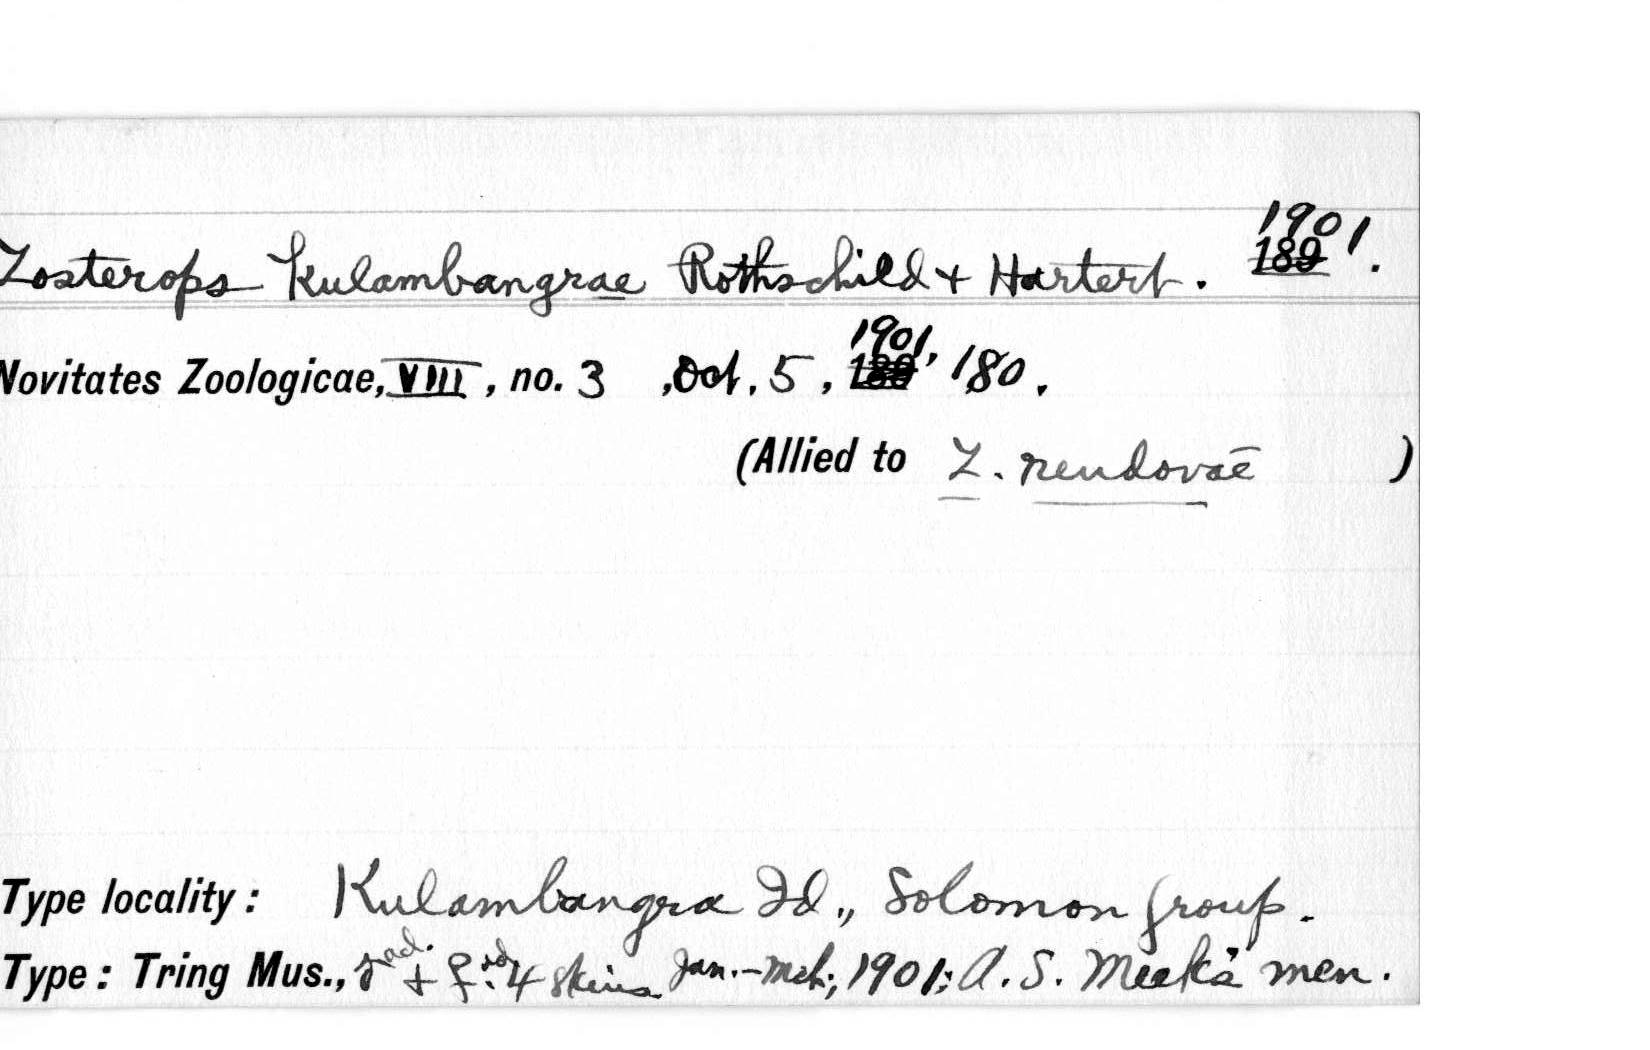 Zosterops Kulambangrae Rothschild + Hartert. 189 1901.
Novitates Zoologicae, VIII, no. 3, Oct. 5, 1901, 180.
(Allied to Z. rendovae)
Type locality: Kulambangra Id., Solomon Group.
Type: Tring Mus., ♂ ad. + ♀ ad. 4 skins Jan.-Mch; 1901; A. S. Meek's men.